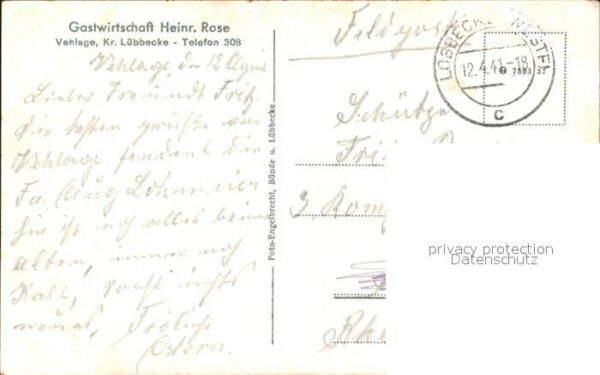 Gastwirtschaft Heinr. Rose
Vehlage, Kr. Lübbecke - Telefon 308
Vehlage, den 12 April
Lieber Freundt Fritz
Die besten grüße von
Vehlage sendent die
Fa. Aug Lohmeier
hir ist noch alles beim
alten, immer noch
Kalt, sonst nichts
neues, Fröhliche
Ostern.
Foto-Engelbrecht, Bünde u. Lübbecke
Feldpost
LÜBBECKE (WESTF)
12.4.41-18
c
Schütze
3. Komp
privacy protection
Datenschutz